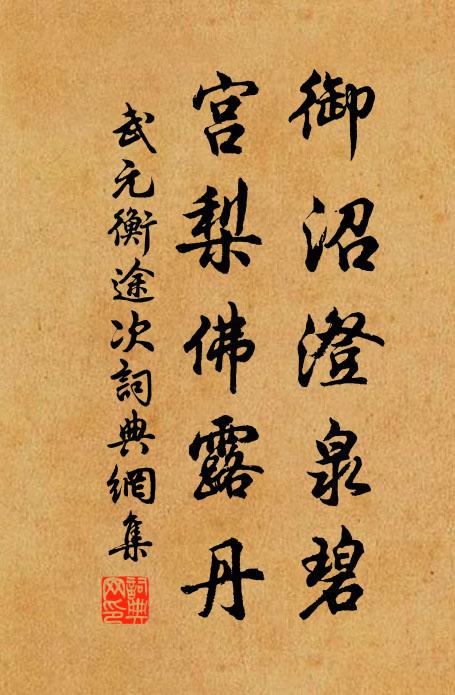 御沼澄泉碧
宫梨佛露丹
武元衡途次詞典網集
詞典網印